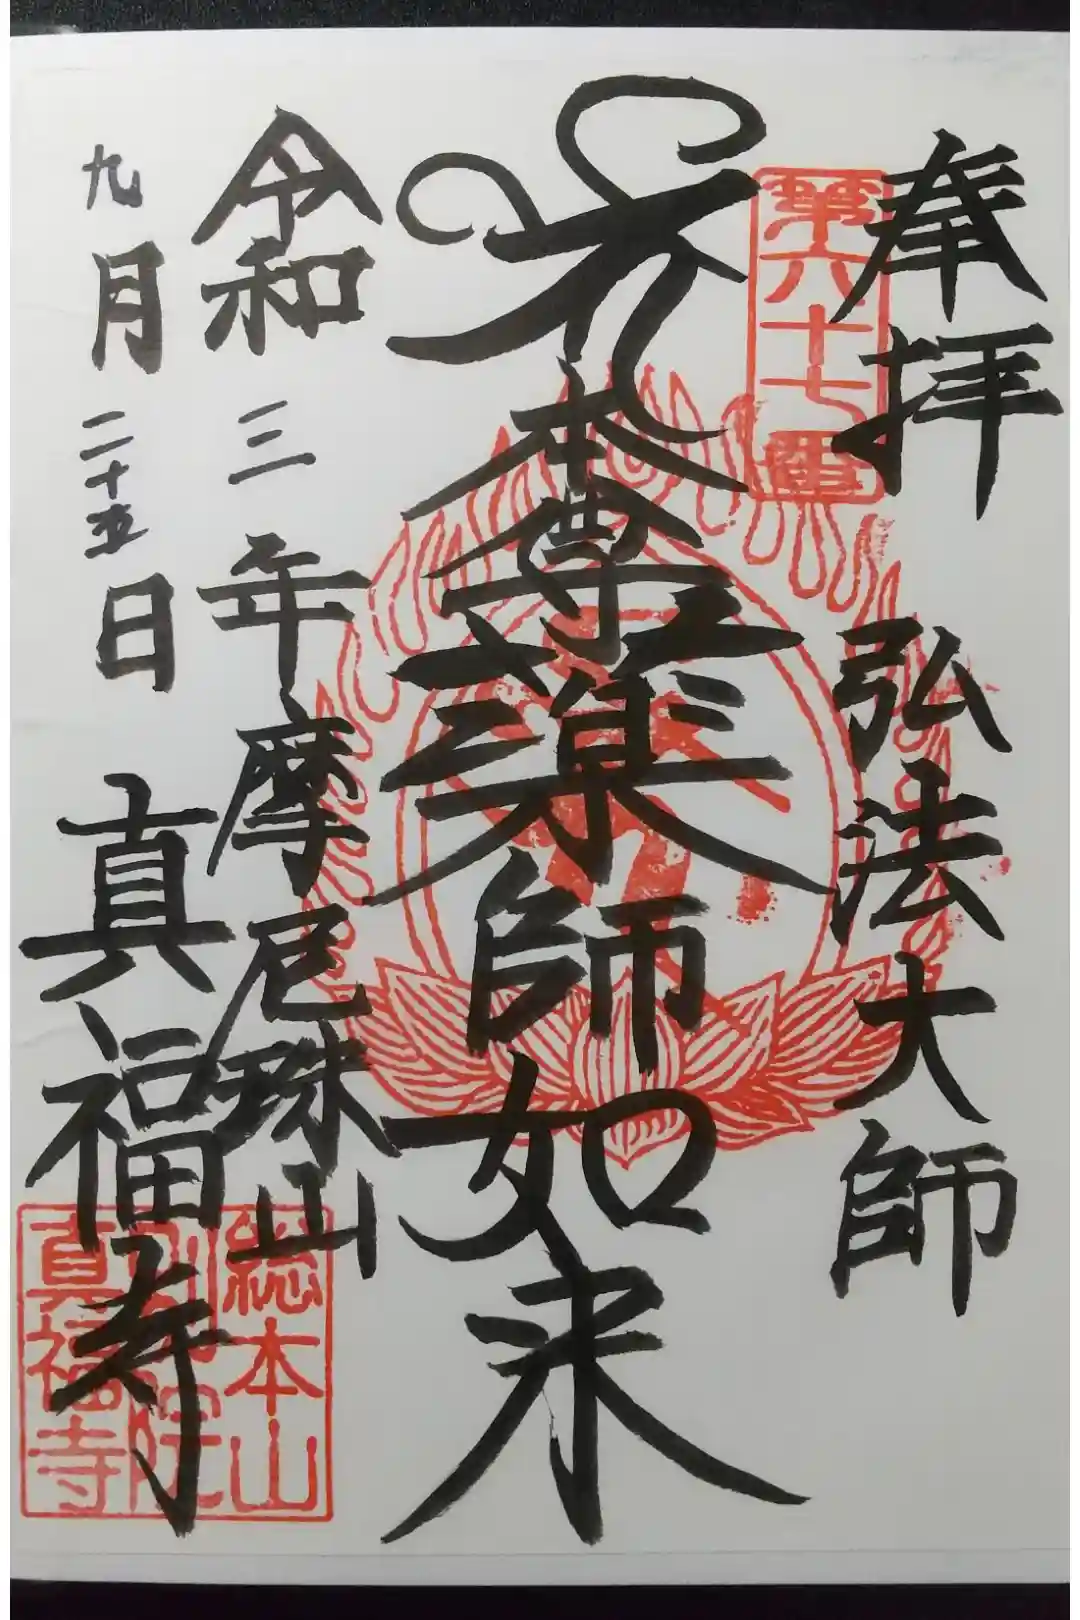 奉拝 弘法大師
第六十七番
本尊薬師如来
令和三年 摩尼珠山
九月二十五日 真福寺
総本山
院
真福寺